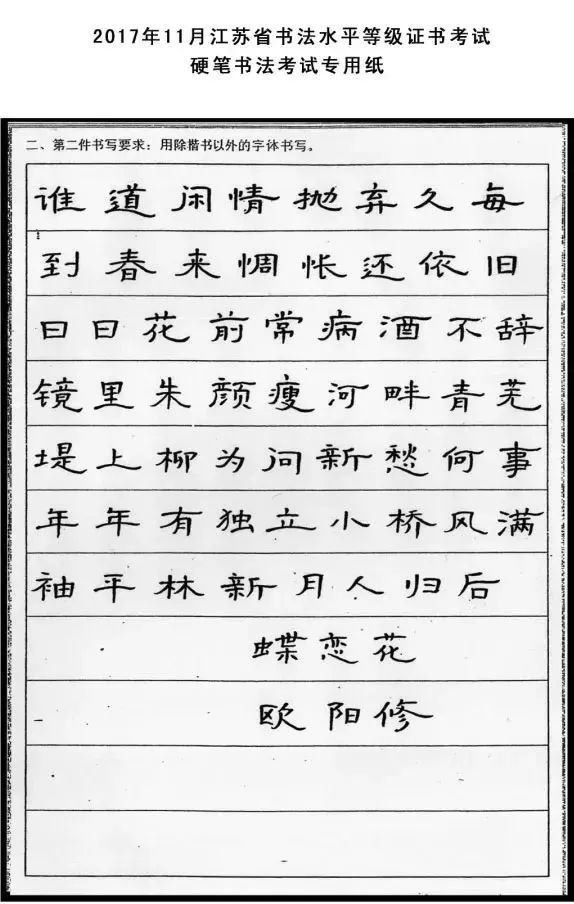 2017年11月江苏省书法水平等级证书考试
硬笔书法考试专用纸
二、第二件书写要求：用除楷书以外的字体书写。
谁道闲情抛弃久每
到春来惆怅还依旧
日日花前常病酒不辞
镜里朱颜瘦河畔青芜
堤上柳为问新愁何事
年年有独立小桥风满
袖平林新月人归后
蝶恋花
欧阳修